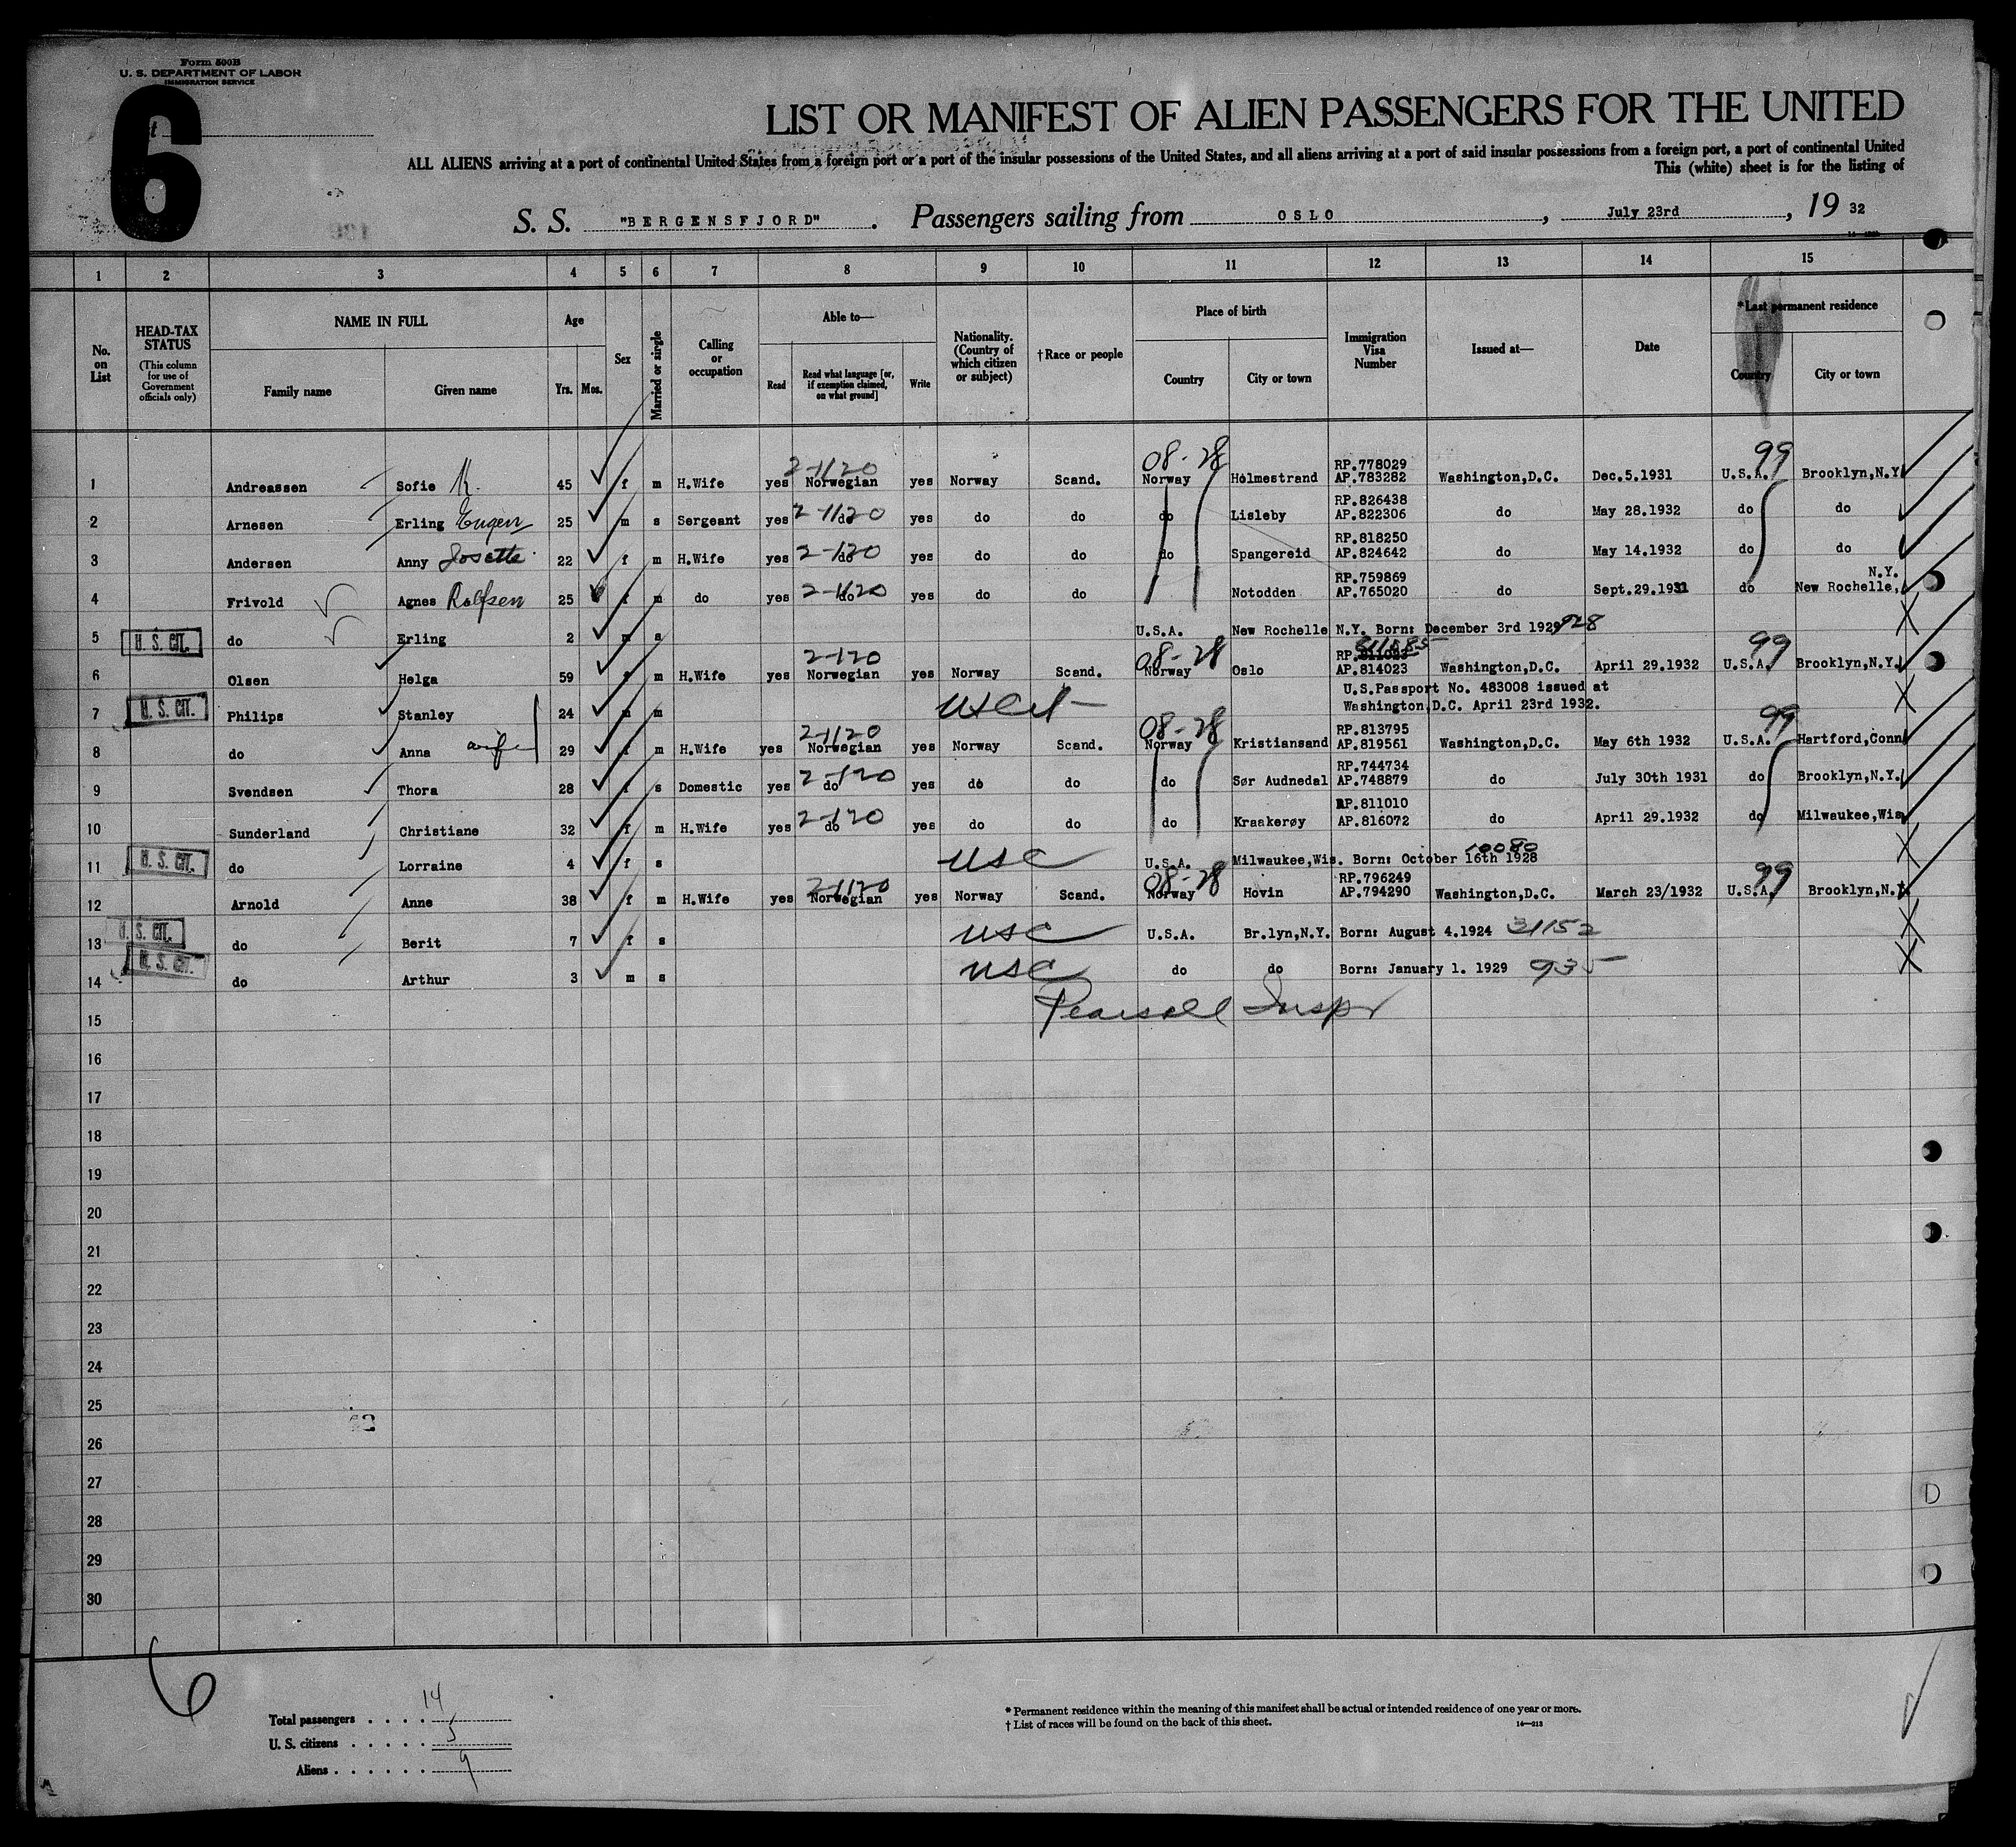 Form 500B
U. S. DEPARTMENT OF LABOR
IMMIGRATION SERVICE
6
LIST OR MANIFEST OF ALIEN PASSENGERS FOR THE UNITED
ALL ALIENS arriving at a port of continental United States from a foreign port or a port of the insular possessions of the United States, and all aliens arriving at a port of said insular possessions from a foreign port, a port of continental United
This (white) sheet is for the listing of
S. S. "BERGENSFJORD". Passengers sailing from OSLO, July 23rd, 19 32
1 2 3 4 5 6 7 8 9 10 11 12 13 14 15
No. on List
HEAD-TAX STATUS (This column for use of Government officials only)
NAME IN FULL Family name Given name
Age Yrs. Mos.
Sex
Married or single
Calling or occupation
Able to— Read Read what language [or, if exemption claimed, on what ground] Write
Nationality. (Country of which citizen or subject)
†Race or people
Place of birth Country City or town
Immigration Visa Number
Issued at—
Date
*Last permanent residence Country City or town
2-1120 08-28 99
1 Andreassen Sofie K. 45 f m H.Wife yes Norwegian yes Norway Scand. Norway Holmestrand RP.778029 AP.783282 Washington,D.C. Dec.5.1931 U.S.A. Brooklyn,N.Y.
2 Arnesen Erling Eugen 25 m s Sergeant yes do 2-1120 yes do do do Lisleby RP.826438 AP.822306 do May 28.1932 do do
3 Andersen Anny Josette 22 f m H.Wife yes do 2-120 yes do do do Spangereid RP.818250 AP.824642 do May 14.1932 do do
4 Frivold Agnes Rolfsen 25 f m do yes do 2-1120 yes do do Notodden RP.759869 AP.765020 do Sept.29.1931 do New Rochelle, N.Y.
5 U. S. CIT. do Erling 2 m s U.S.A. New Rochelle N.Y. Born: December 3rd 1929 928
2-120 08-28 811085 99
6 Olsen Helga 59 f m H.Wife yes Norwegian yes Norway Scand. Norway Oslo RP.811083 AP.814023 Washington,D.C. April 29.1932 U.S.A. Brooklyn,N.Y.
7 U. S. CIT. Philips Stanley 24 m m uscit U.S.Passport No. 483008 issued at Washington,D.C. April 23rd 1932.
2-1120 08-28 99
8 do Anna wife 29 f m H.Wife yes Norwegian yes Norway Scand. Norway Kristiansand RP.813795 AP.819561 Washington,D.C. May 6th 1932 U.S.A. Hartford,Conn
9 Svendsen Thora 28 f s Domestic yes do 2-120 yes do do do Sør Audnedal RP.744734 AP.748879 do July 30th 1931 do Brooklyn,N.Y.
10 Sunderland Christiane 32 f m H.Wife yes do 2-120 yes do do do Kraakerøy RP.811010 AP.816072 do April 29.1932 do Milwaukee,Wis
11 U. S. CIT. do Lorraine 4 f s usc U.S.A. Milwaukee,Wis. Born: October 16th 1928 10080
2-1120 08-28 99
12 Arnold Anne 38 f m H.Wife yes Norwegian yes Norway Scand. Norway Hovin RP.796249 AP.794290 Washington,D.C. March 23/1932 U.S.A. Brooklyn,N.Y
13 U. S. CIT. do Berit 7 f s usc U.S.A. Br.lyn,N.Y. Born: August 4.1924 31152
14 U. S. CIT. do Arthur 3 m s usc do do Born: January 1. 1929 935
15 Pearsall Inspr
16
17
18
19
20
21
22
23
24
25
26
27
28
29
30
6
Total passengers . . . . 14
U. S. citizens . . . . . 5
Aliens . . . . . . 9
* Permanent residence within the meaning of this manifest shall be actual or intended residence of one year or more.
† List of races will be found on the back of this sheet. 14—213